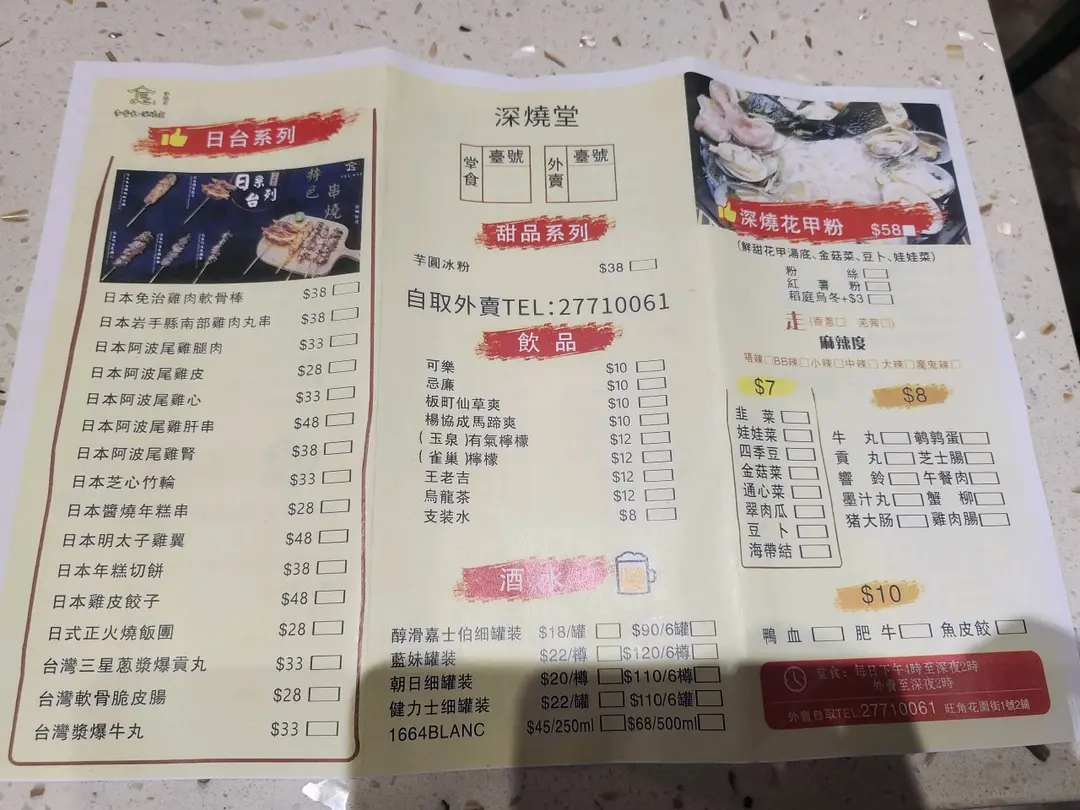 食
日台系列
日系台列
特色
串燒
日本免治雞肉軟骨棒 $38
日本岩手縣南部雞肉丸串 $38
日本阿波尾雞腿肉 $33
日本阿波尾雞皮 $28
日本阿波尾雞心 $33
日本阿波尾雞肝串 $48
日本阿波尾雞腎 $38
日本芝心竹輪 $33
日本醬燒年糕串 $28
日本明太子雞翼 $48
日本年糕切餅 $38
日本雞皮餃子 $48
日式正火燒飯團 $28
台灣三星蔥爆漿貢丸 $33
台灣軟骨脆皮腸 $28
台灣漿爆牛丸 $33
深燒堂
堂食 臺號
外賣 臺號
甜品系列
芋圓冰粉 $38
自取外賣TEL:27710061
飲品
可樂 $10
忌廉 $10
板町仙草爽 $10
楊協成馬蹄爽 $10
(玉泉)有氣檸檬 $12
(雀巢)檸檬 $12
王老吉 $12
烏龍茶 $12
支装水 $8
酒水
醇滑嘉士伯细罐装 $18/罐 $90/6罐
藍妹罐装 $22/樽 $120/6樽
朝日细罐装 $20/樽 $110/6樽
健力士细罐装 $22/罐 $110/6罐
1664BLANC $45/250ml $68/500ml
深燒花甲粉 $58
(鮮甜花甲湯底、金菇菜、豆卜、娃娃菜)
粉絲
紅薯粉
稻庭烏冬+$3
走(香蔥 芫茜)
麻辣度
唔辣 BB辣 小辣 中辣 大辣 魔鬼辣
$7
韭菜
娃娃菜
四季豆
金菇菜
通心菜
翠肉瓜
豆卜
海帶結
$8
牛丸 鵪鶉蛋
貢丸 芝士腸
響鈴 午餐肉
墨汁丸 蟹柳
猪大肠 雞肉腸
$10
鴨血 肥牛 魚皮餃
堂食:每日下午4時至深夜2時
外賣至深夜2時
外賣自取TEL:27710061 旺角花園街1號2鋪